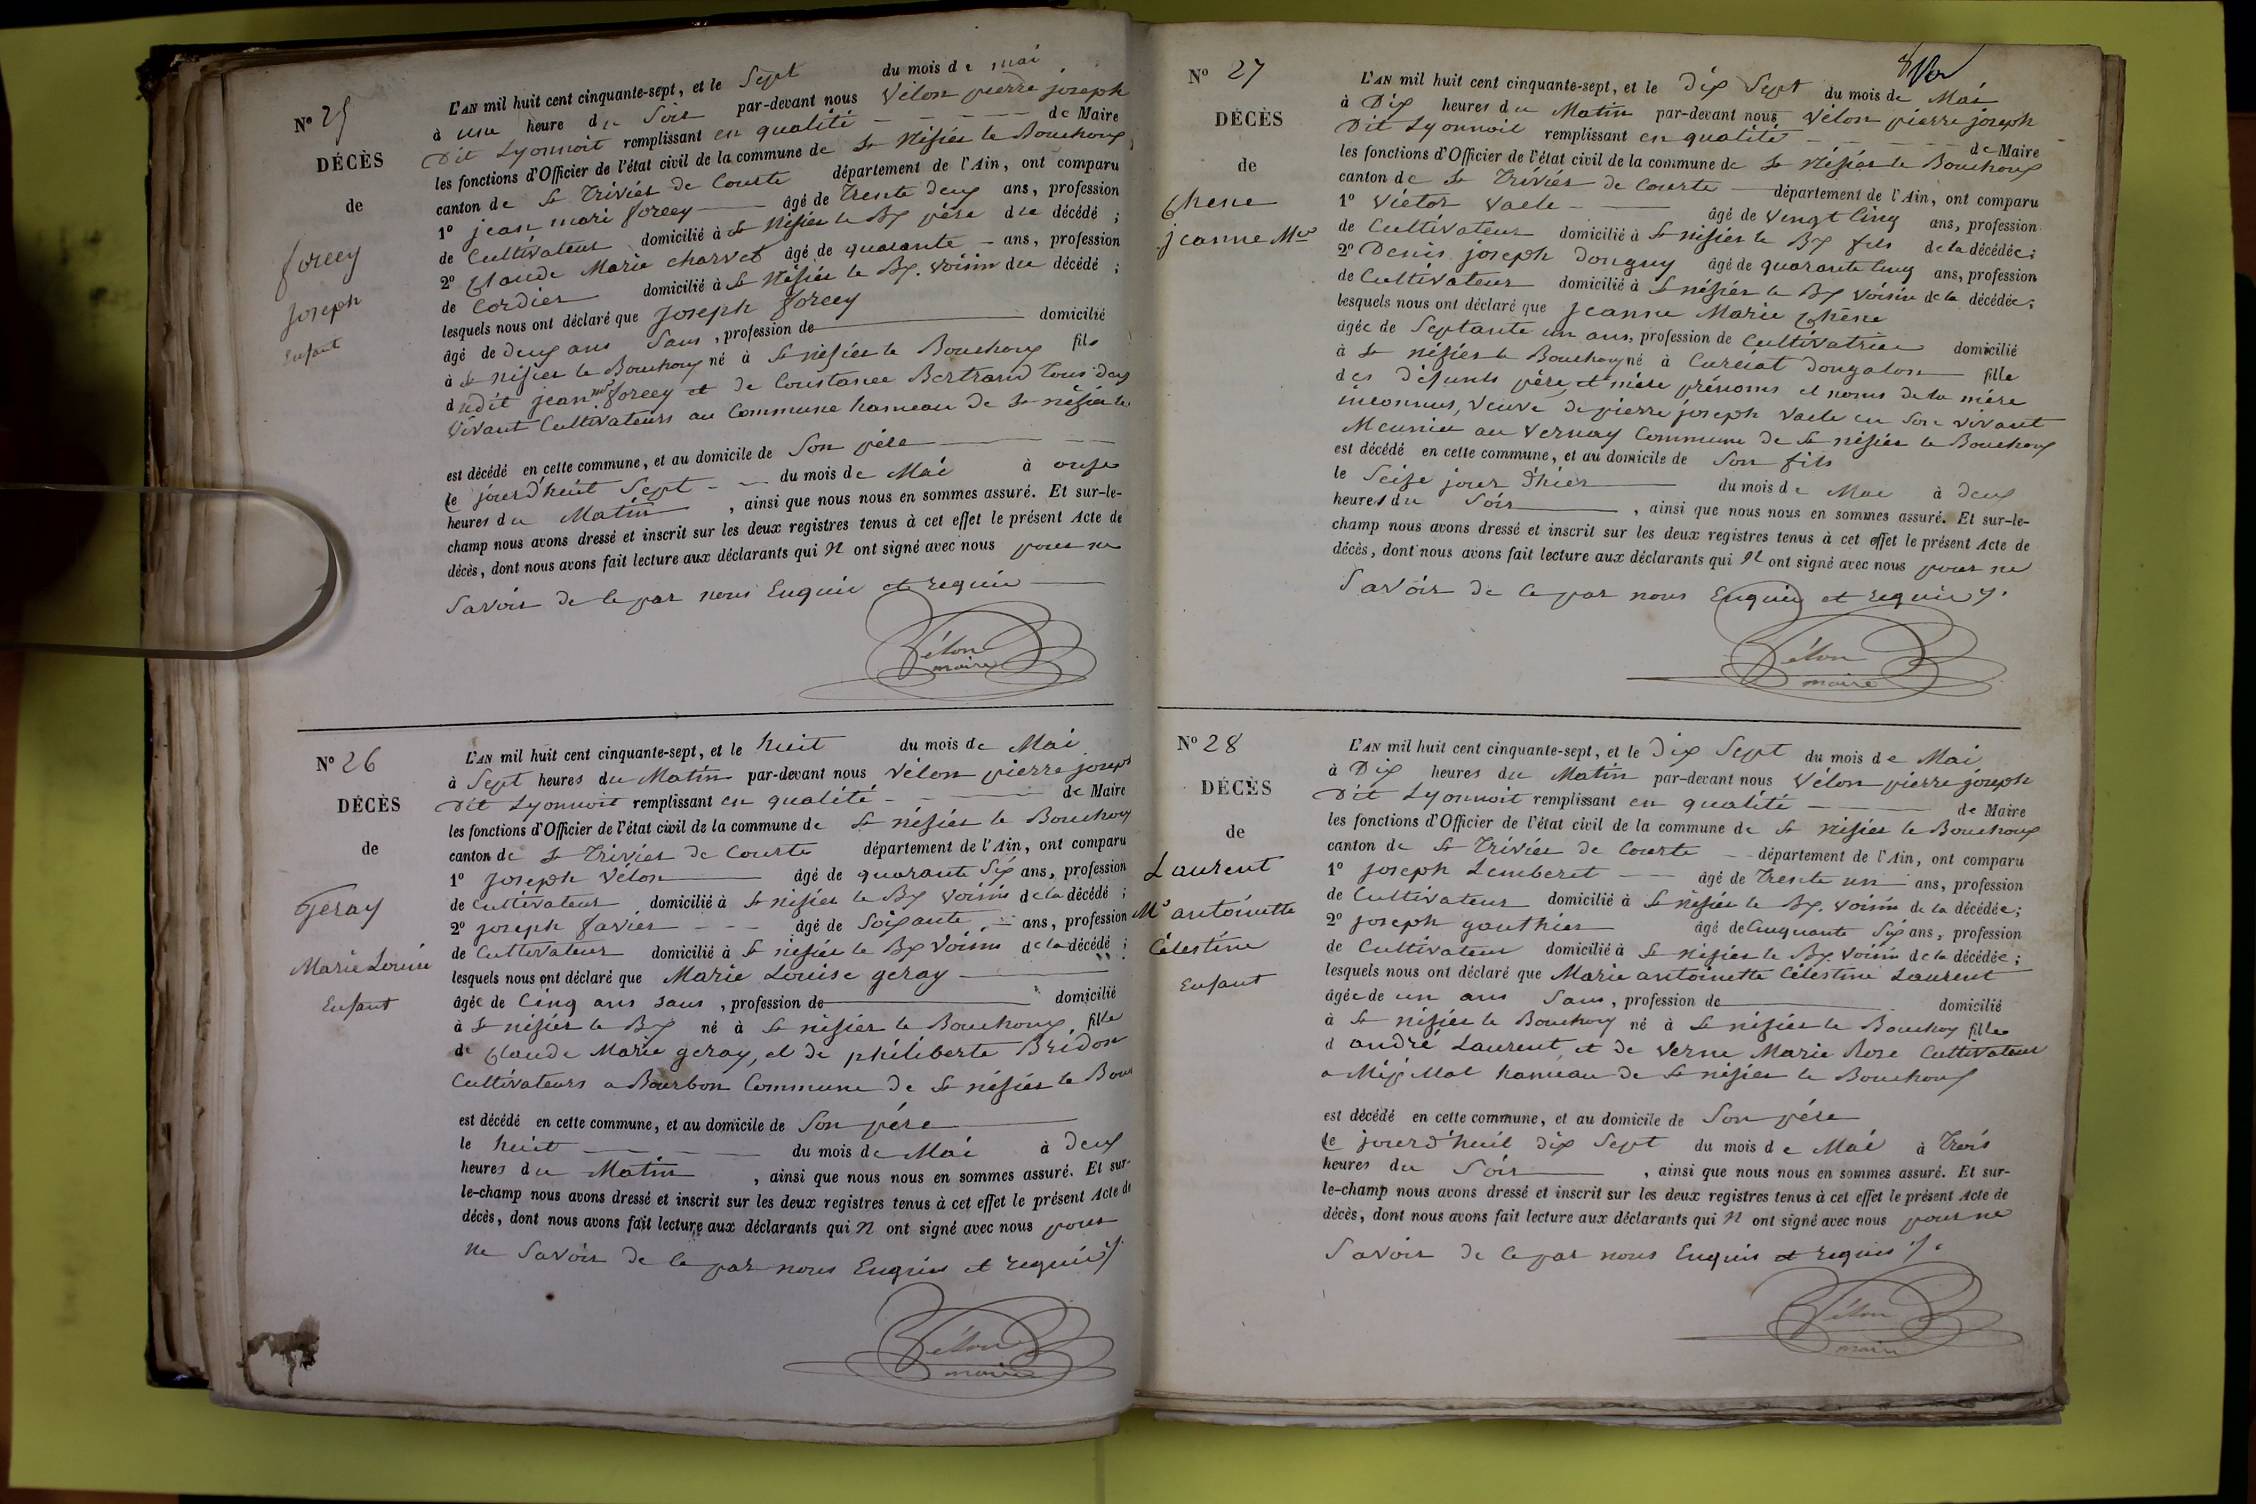 N° 25
DÉCÈS
de
forcey
joseph
Enfant
L'AN mil huit cent cinquante-sept, et le Sept du mois de mai
à une heure du Soir par-devant nous Vélon pierre joseph
Dit Lyonnoit remplissant en qualité de Maire
les fonctions d'Officier de l'état civil de la commune de St Nisier le Bouchoux
canton de St Triviér de Courte département de l'Ain, ont comparu
1° jean mari forcey âgé de Trente deux ans, profession
de Cultivateur domicilié à St Nisier le Bx père du décédé ;
2° Claude Marie charvet âgé de quarante ans, profession
de Cordier domicilié à St Nisier le Bx. Voisin du décédé ;
lesquels nous ont déclaré que joseph forcey
âgé de deux ans Sans, profession de domicilié
à St Nisier le Bouchoux né à St nisier le Bouchoux fils
dudit jean mie forcey et de Constance Bertrand tous deux
Vivant Cultivateurs au Commune hameau de St nisier le
est décédé en cette commune, et au domicile de Son pére
le jourd'huit Sept du mois de Mai à onze
heures du Matin, ainsi que nous nous en sommes assuré. Et sur-le-
champ nous avons dressé et inscrit sur les deux registres tenus à cet effet le présent Acte de
décès, dont nous avons fait lecture aux déclarants qui N ont signé avec nous pour ne
Savoir de ce par nous Enquis et requis
Vélon
maire
N° 26
DÉCÈS
de
Geray
Marie Louise
Enfant
L'AN mil huit cent cinquante-sept, et le huit du mois de Mai
à Sept heures du Matin par-devant nous Vélon pierre joseph
Dit Lyonnoit remplissant en qualité de Maire
les fonctions d'Officier de l'état civil de la commune de St nisier le Bouchoux
canton de St Trivier de Courte département de l'Ain, ont comparu
1° joseph Vélon âgé de quarante Six ans, profession
de Cultivateur domicilié à St nisier le Bx Voisin de la décédé ;
2° joseph favier âgé de Soixante ans, profession
de Cultivateur domicilié à St nisier le Bx Voisin de la décédé ;
lesquels nous ont déclaré que Marie Louise geray
âgée de Cinq ans sans, profession de domicilié
à St nisier le Bx né à St nisier le Bouchoux fille
de Claude Marie geray, et de philiberte Bridon
Cultivateurs a Bourbon Commune de St nisier le Bou
est décédé en cette commune, et au domicile de Son pére
le huit du mois de Mai à Deux
heures du Matin, ainsi que nous nous en sommes assuré. Et sur-
le-champ nous avons dressé et inscrit sur les deux registres tenus à cet effet le présent Acte de
décès, dont nous avons fait lecture aux déclarants qui N ont signé avec nous pour
ne Savoir de ce par nous Enquis et requis
Vélon
maire
N° 27
DÉCÈS
de
Chene
jeanne Mie
L'AN mil huit cent cinquante-sept, et le Dix Sept du mois de Mai
à Dix heures du Matin par-devant nous Vélon pierre joseph
Dit Lyonnoit remplissant en qualité de Maire
les fonctions d'Officier de l'état civil de la commune de St Nisier le Bouchoux
canton de St Triviér de Courte département de l'Ain, ont comparu
1° Victor Vacle âgé de Vingt Cinq ans, profession
de Cultivateur domicilié à St nisier le Bx fils de la décédée ;
2° Denis joseph Donguy âgé de quarante Cinq ans, profession
de Cultivateur domicilié à St nisier le Bx Voisin de la décédée ;
lesquels nous ont déclaré que jeanne Marie Chêne
âgée de Septante un ans, profession de Cultivatrice domicilié
à St nisier le Bouchoux né à Curciat Dongalon fille
des Défunts père et mère prénoms et noms de la mére
inconnus, Veuve de pierre joseph Vacle en Son vivant
Meunier au Vernay Commune de St nisier le Bouchoux
est décédé en cette commune, et au domicile de Son fils
le Seize jour d'hier du mois de Mai à deux
heures du Soir, ainsi que nous nous en sommes assuré. Et sur-le-
champ nous avons dressé et inscrit sur les deux registres tenus à cet effet le présent Acte de
décès, dont nous avons fait lecture aux déclarants qui N ont signé avec nous pour ne
Savoir de ce par nous Enquis et requis
Vélon
maire
N° 28
DÉCÈS
de
Laurent
Me antoinette
Célestine
Enfant
L'AN mil huit cent cinquante-sept, et le Dix Sept du mois de Mai
à Dix heures du Matin par-devant nous Vélon pierre joseph
Dit Lyonnoit remplissant en qualité de Maire
les fonctions d'Officier de l'état civil de la commune de St Nisier le Bouchoux
canton de St Triviér de Courte département de l'Ain, ont comparu
1° joseph Lemberet âgé de Trente un ans, profession
de Cultivateur domicilié à St Nisier le Bx. Voisin de la décédée ;
2° joseph gauthier âgé de Cinquante Six ans, profession
de Cultivateur domicilié à St Nisier le Bx. Voisin de la décédée ;
lesquels nous ont déclaré que Marie antoinette Célestine Laurent
âgée de un ans Sans, profession de domicilié
à St nisier le Bouchoux né à St nisier le Bouchoux fille
d andré Laurent, et de Verne Marie Rose Cultivateur
a hameau de St nisier le Bouchoux
est décédé en cette commune, et au domicile de Son pére
le jourd'huit dix Sept du mois de Mai à Trois
heures du Soir, ainsi que nous nous en sommes assuré. Et sur-
le-champ nous avons dressé et inscrit sur les deux registres tenus à cet effet le présent Acte de
décès, dont nous avons fait lecture aux déclarants qui N ont signé avec nous pour ne
Savoir de ce par nous Enquis et requis
Vélon
maire